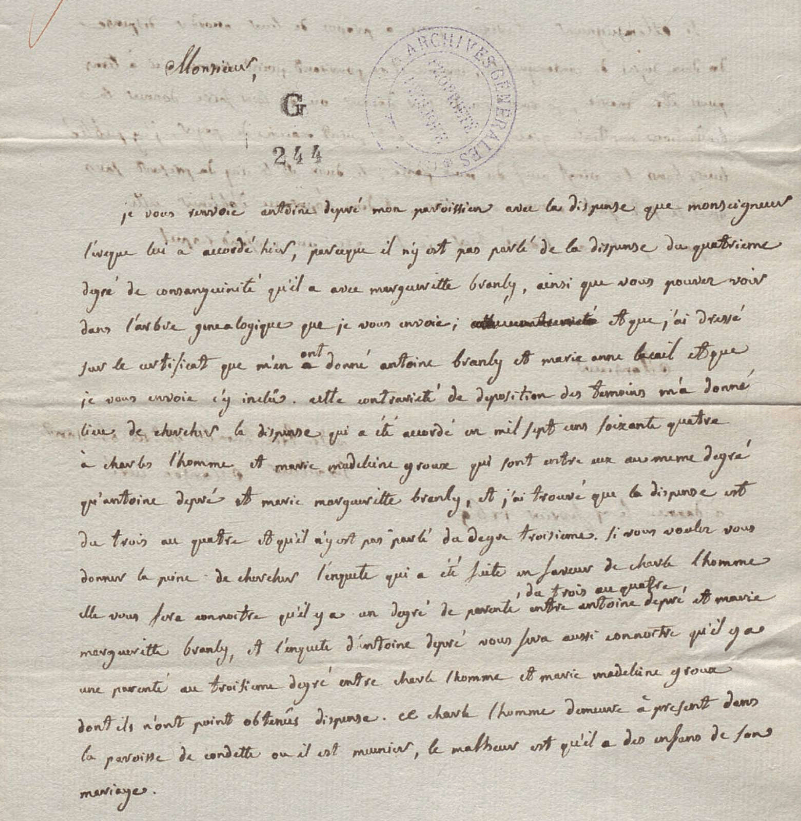 Monsieur,
ARCHIVES GENERALES
PROPRIÉTÉ
G
244
je vous renvoie antoine depré mon paroissien avec la dispense que monseigneur
l'éveque lui a accordé hier, parceque il n'y est pas parlé de la dispense du quatrieme
degré de consanguinité qu'il a avec margueritte branly, ainsi que vous pouvez voir
dans l'arbre genealogique que je vous envoie; et que j'ai dressé
sur le certificat que m'en ont donné antoine branly et marie anne et que
je vous envoie cy inclus. cette contrarieté de deposition des temoins m'a donné
lieu de chercher la dispense qui a été accordé en mil sept cens soixante quatre
à charles l'homme et marie madeleine groux qui sont entre eux au meme degré
qu'antoine depré et marie margueritte branly, et j'ai trouvé que la dispense est
du trois au quatre et qu'il n'y est pas parlé du degre troisieme. si vous voulez vous
donner la peine de chercher l'enquete qui a été faite en faveur de charle l'homme
elle vous fera connoitre qu'il y a un degré de parenté, du trois au quatre, entre antoine depré et marie
margueritte branly, et l'enquete d'antoine depré vous fera aussi connoitre qu'il y a
une parenté au troisieme degré entre charle l'homme et marie madeleine groux
dont ils n'ont point obtenûs dispense. ce charle l'homme demeure à present dans
la paroisse de condette ou il est meunier, le malheur est qu'il a des enfans de son
mariage.